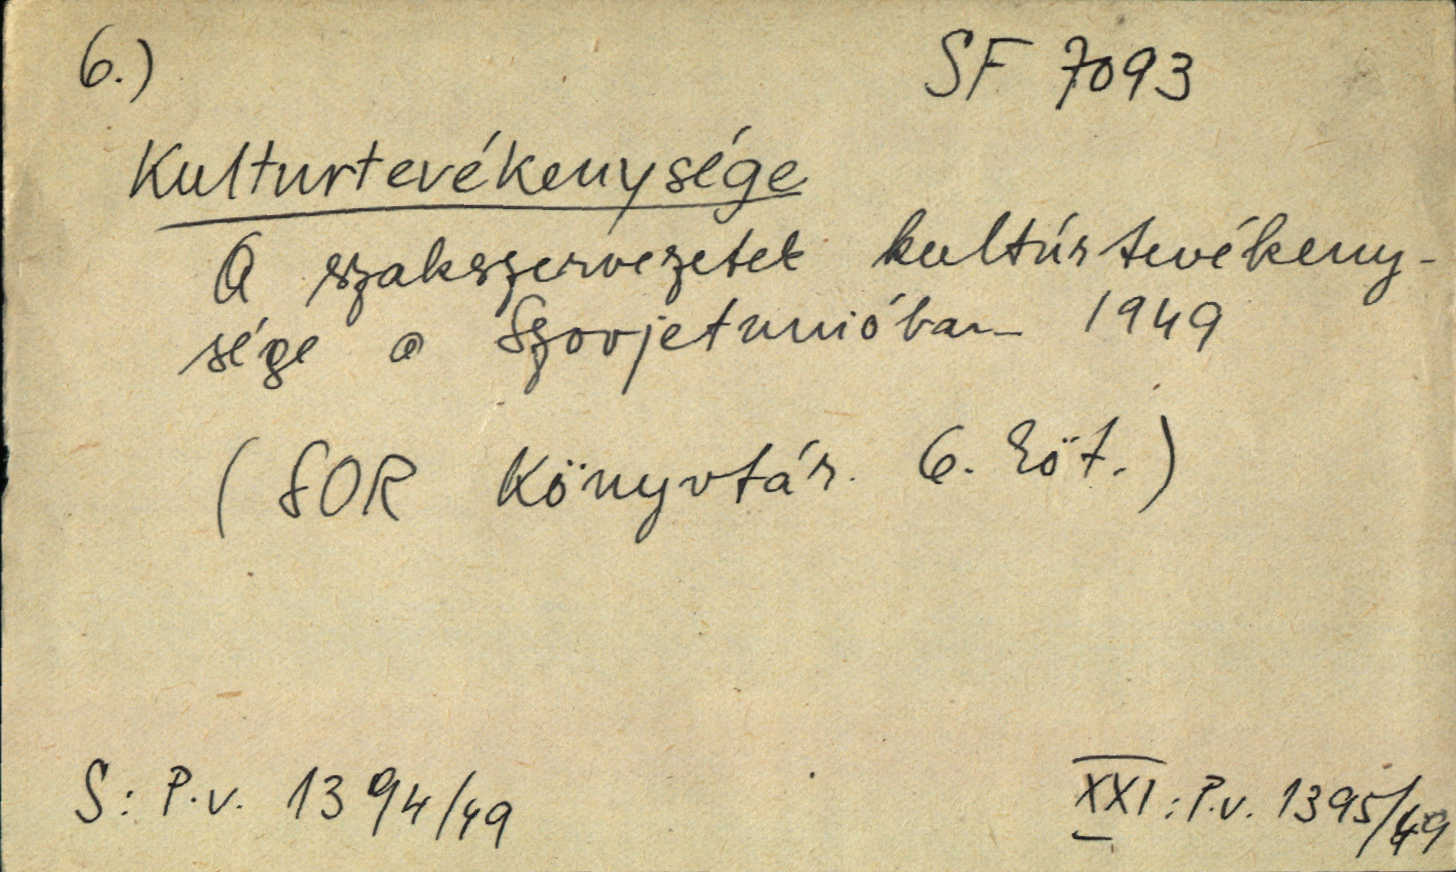 6.) SF 7093
Kulturtevékenysége
A szakszervezetek kultúrtevékeny-
sége a Szovjetunióban 1949
(SOR Könyvtár. 6. köt.)
S: P.v. 1394/49 XXI: P.v. 1395/49